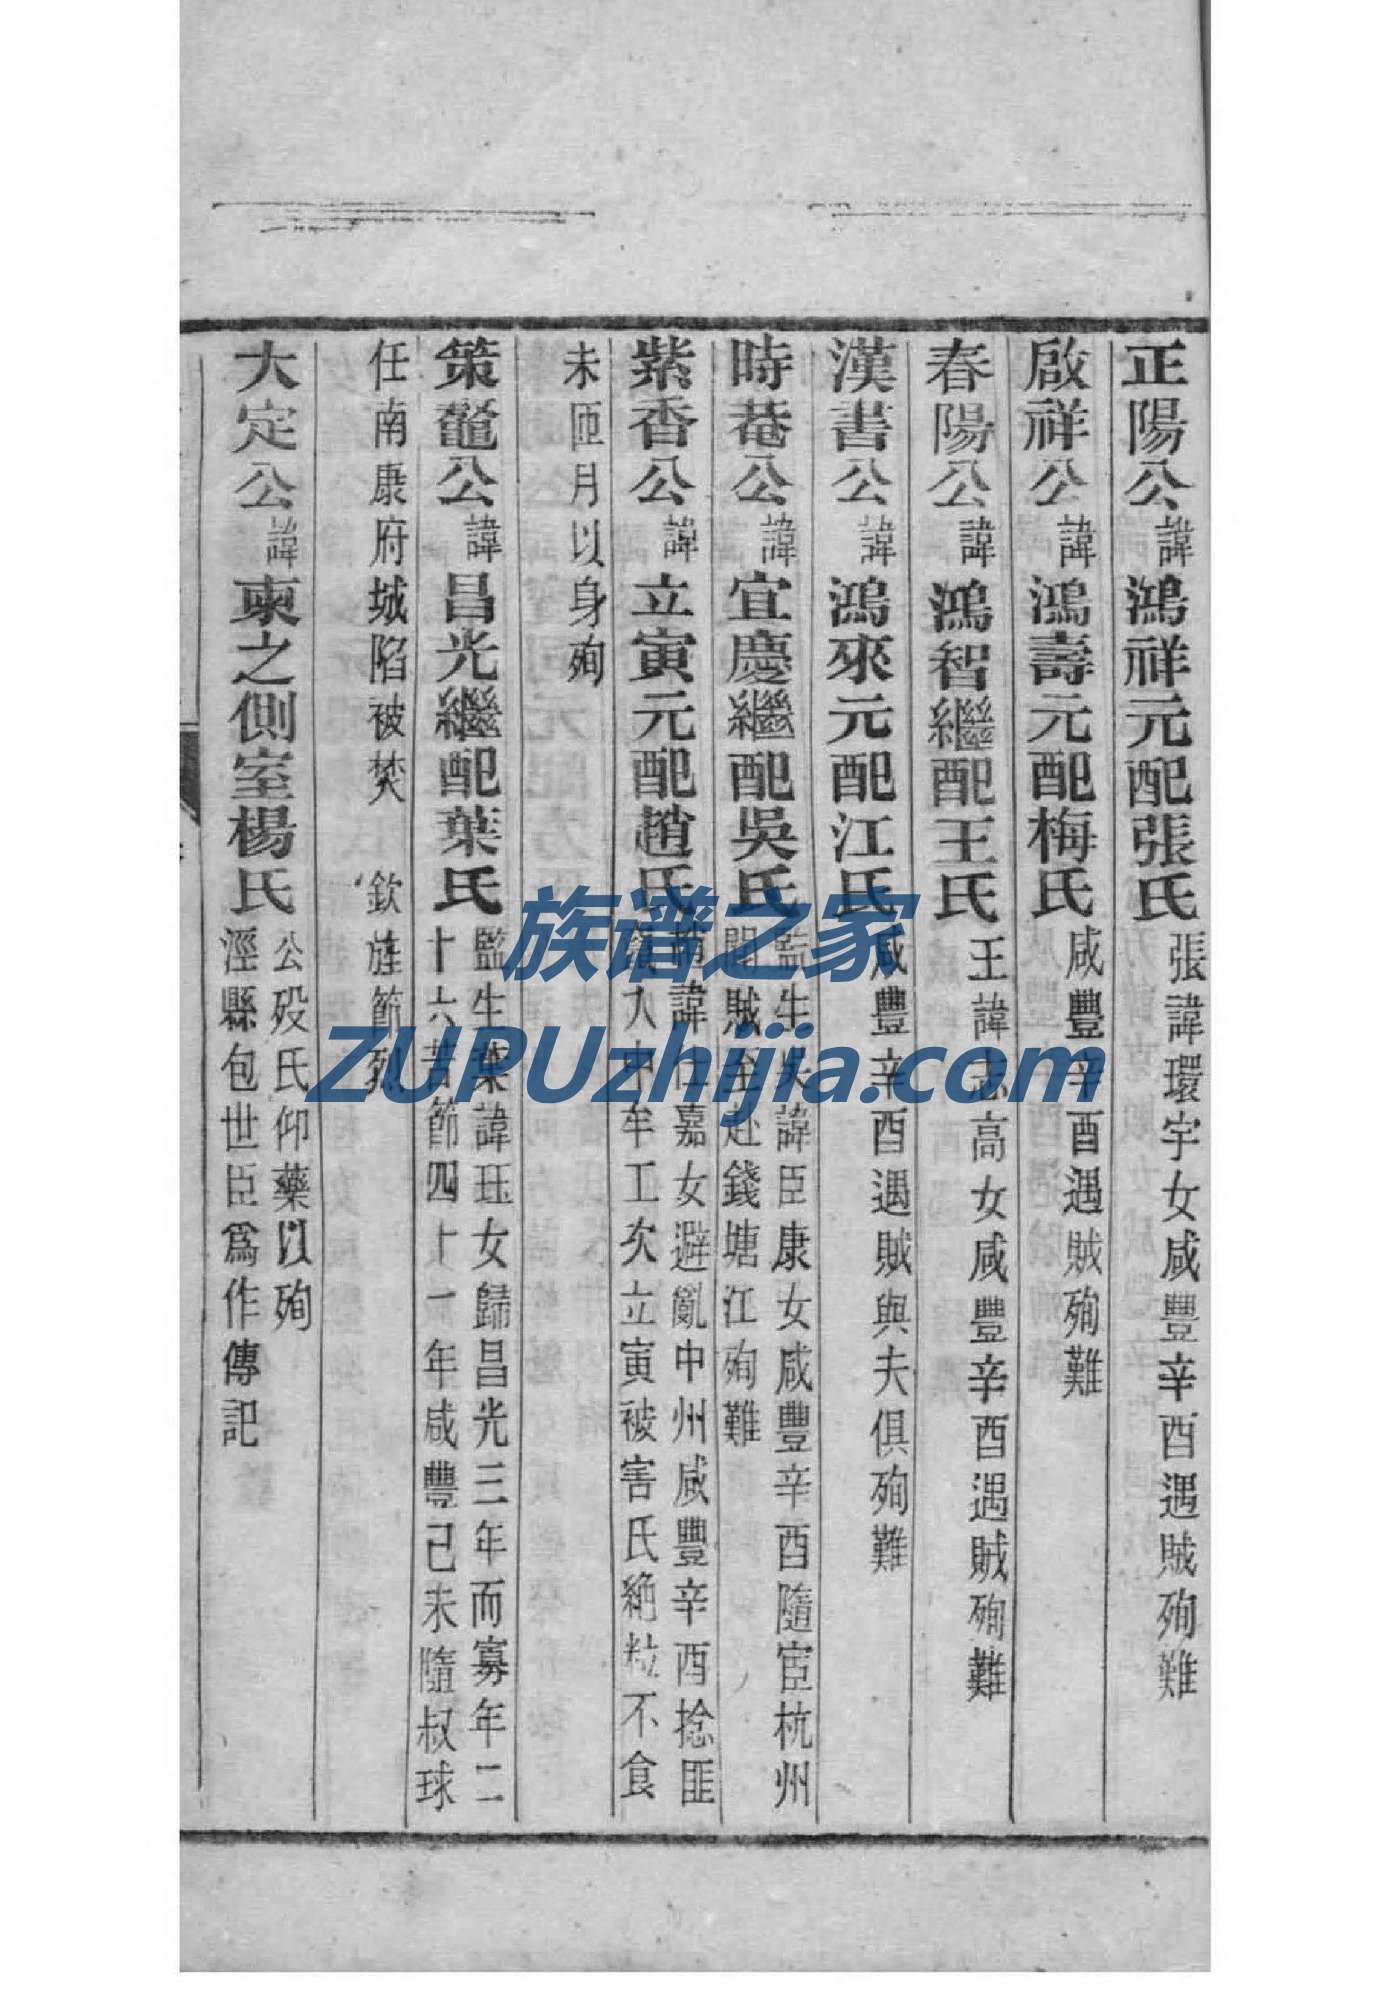 正陽公諱鴻祥元配張氏張諱環宇女咸豐辛酉遇賊殉難
啟祥公諱鴻壽元配梅氏咸豐辛酉遇賊殉難
春陽公諱鴻智繼配王氏王諱志高女咸豐辛酉遇賊殉難
漢書公諱鴻來元配江氏咸豐辛酉遇賊與夫俱殉難
時菴公諱宜慶繼配吳氏監生吳諱臣康女咸豐辛酉隨宦杭州
聞賊至赴錢塘江殉難
紫香公諱立寅元配趙氏諱仁嘉女避亂中州咸豐辛酉捻匪
竄入中牟工次立寅被害氏絶粒不食
未匝月以身殉
策鼇公諱昌光繼配葉氏監生葉諱珏女歸昌光三年而寡年二
十六苦節四十一年咸豐己未隨叔球
任南康府城陷被焚 欽旌節烈
大定公諱柬之側室楊氏公歿氏仰藥以殉
涇縣包世臣爲作傳記
族谱之家
ZUPUzhijia.com